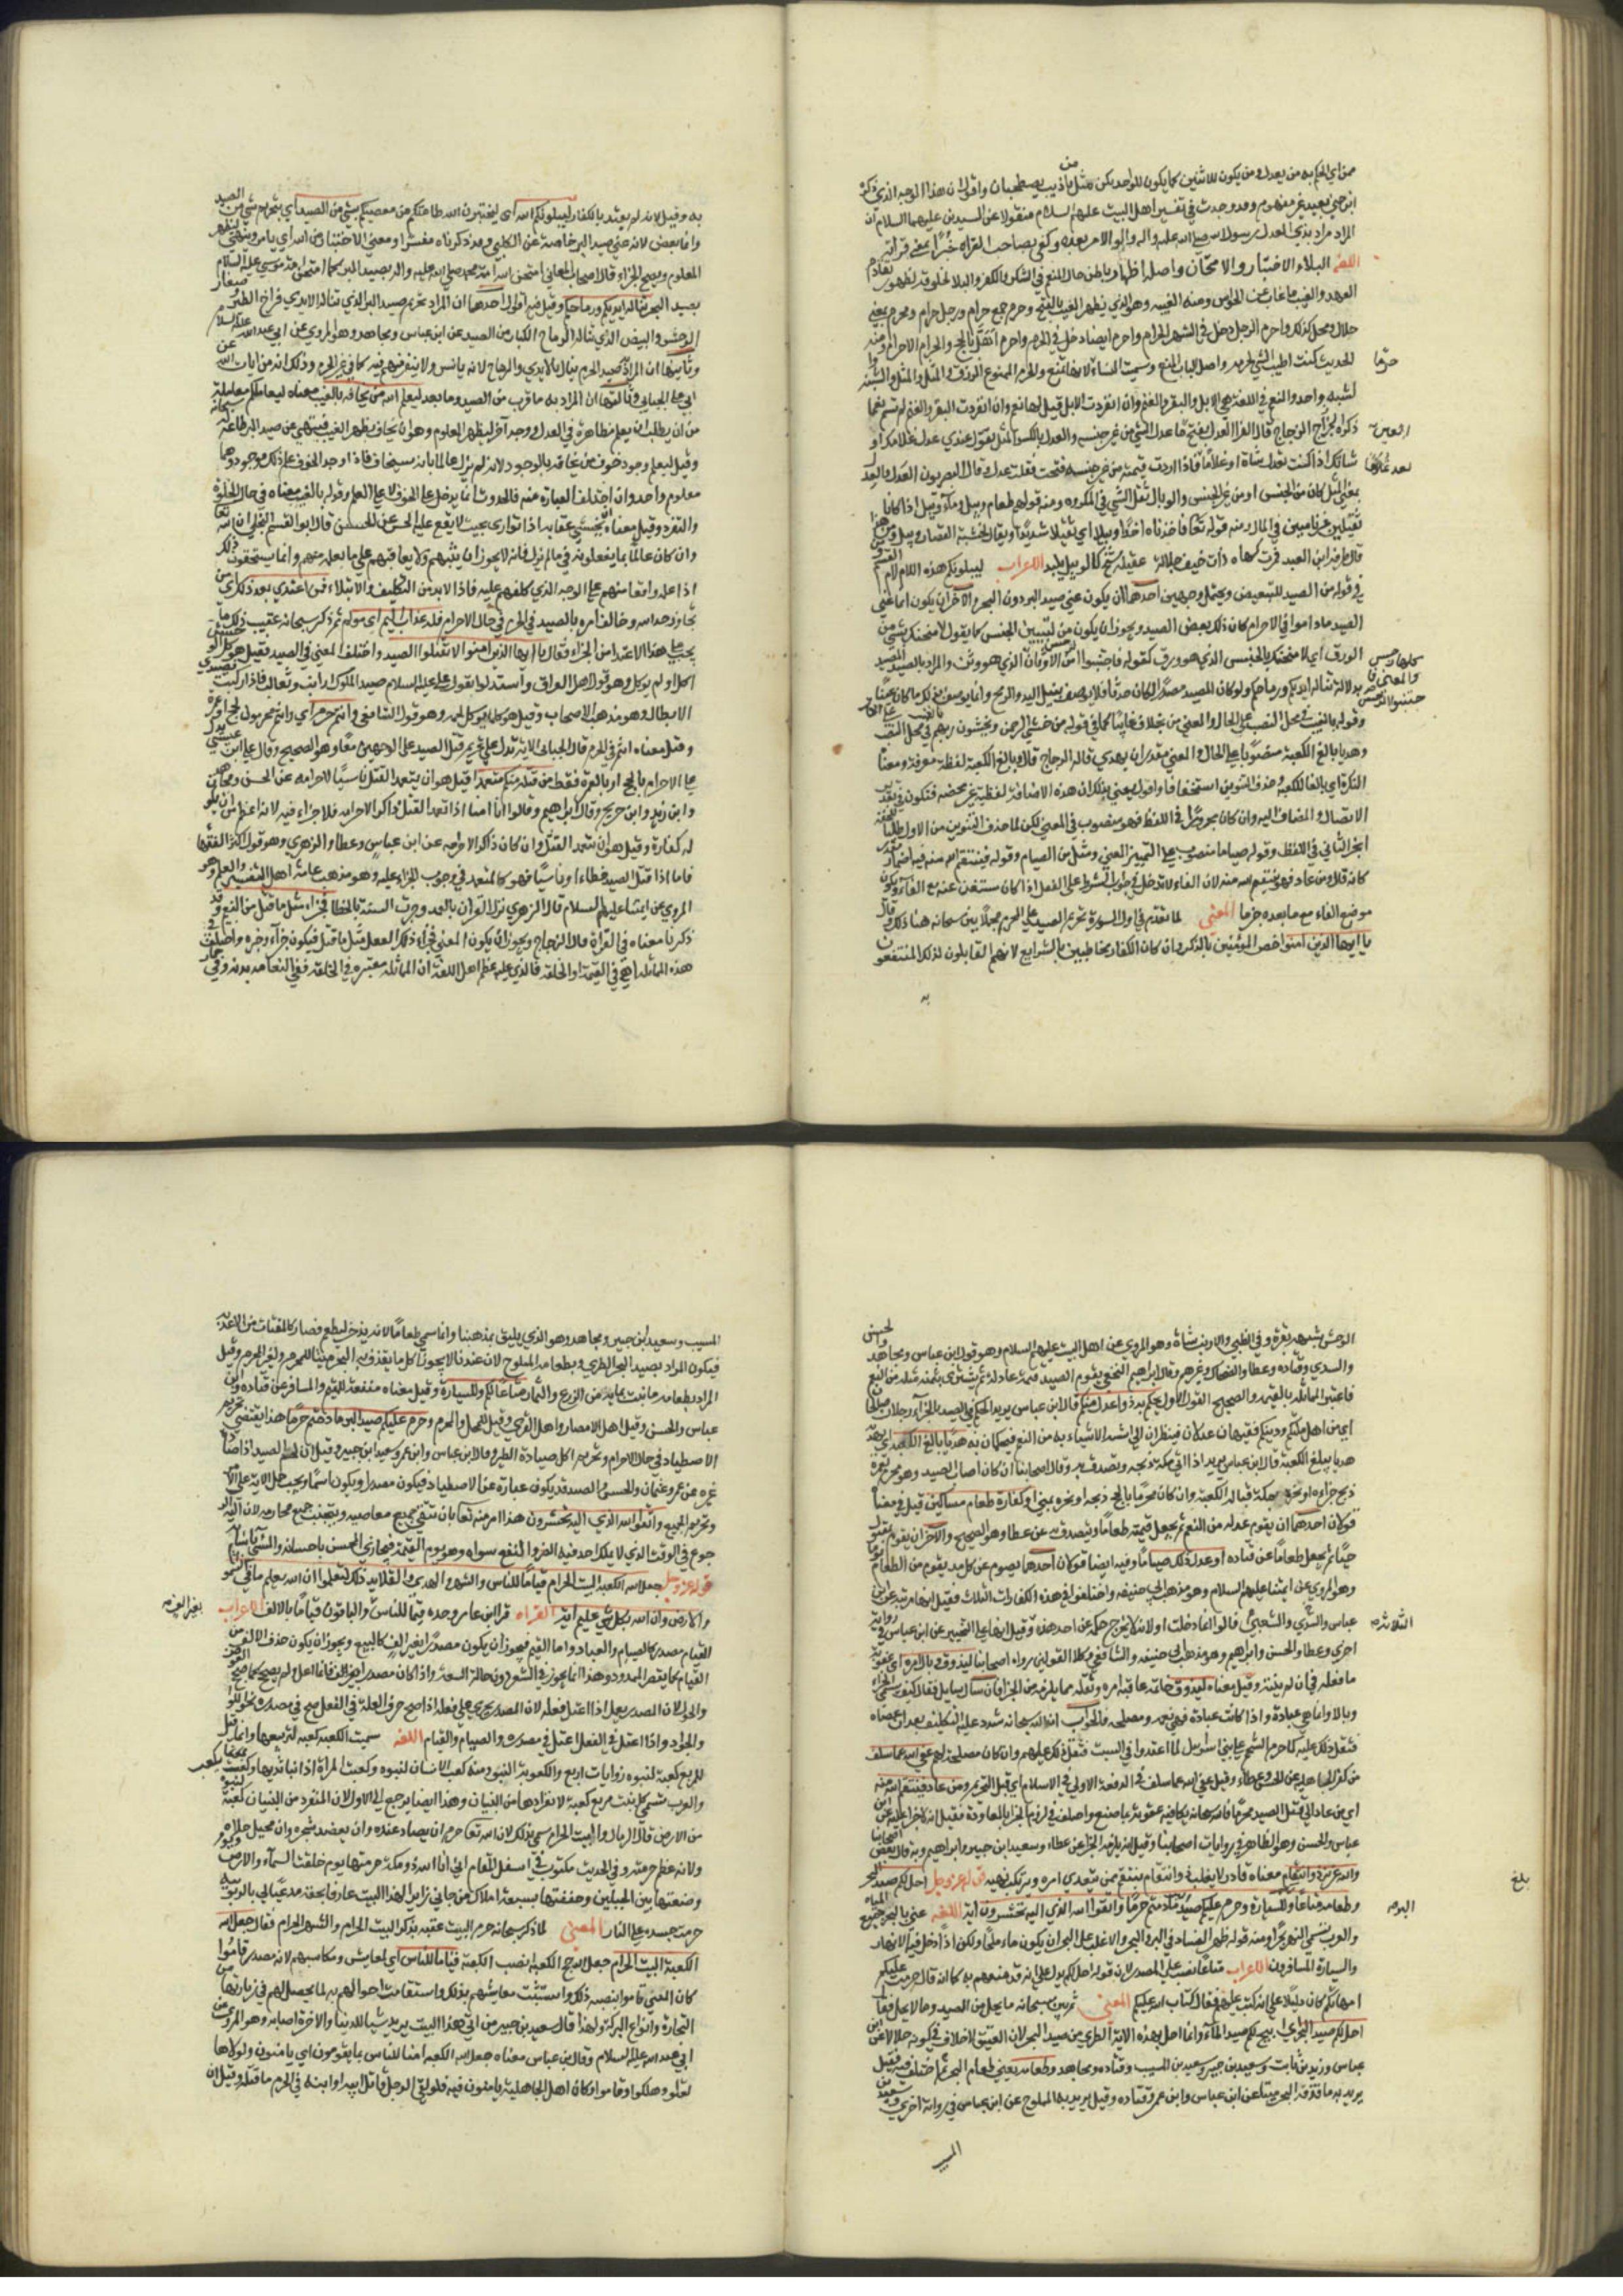 ممن اي الحكم به من يعدل ومن يكون للاثنين كما يكون للواحد يكن مثل من يا ذيب يصطحبان واقول ان هذا الوجه الذي ذكره
ابن جني بعيد غير مفهوم وقد وجدت في تفسير اهل البيت عليهم السلام منقولا عن السيدين عليهما السلام ان
المراد بذي العدل رسول الله صلى الله عليه واله واولو الامر بعده وكفى بصاحب القراه خبرا بمعنى قرائته
اللغة البلاء الاختبار والامتحان واصله اظهار باطن حال المنعم في الشكر والكفر والبلا لظهور تقادم
العهد والغيب ما غاب عن الحواس ومنه الغيبه وهو الذي يظهر الغيب بالفتح وحرم جمع حرام ورجل حرام ومحرم بمعنى
حلال ومحل كذلك واحرم الرجل دخل في الشهر الحرام واحرم ايضا دخل في الحرم واحرم اهل بالحج والحرام الاحرام ومنه
الحديث كنت اطيب النبي لحرمه واصل الباب المنع وسميت النساء لانها تمنع والمحروم الممنوع الرزق والمثل والمثل والشبه
لشبه واحد والنعم في اللغة هي الابل والبقر والغنم وان انفردت الابل قيل لها نعم وان انفردت البقر والغنم لم تسم نعما
ذكره الزجاج قال الفرا العدل بفتح ما عدل الشي من غير جنسه والعدل بالكسر المثل تقول عندي عدل غلامك او
شاتك اذا كنت تعدل شاة او غلاما فاذا اردت قيمته من غير جنسه فتحت فقلت عدل وقال البصريون العدل والعدل
بمعنى المثل كان من الجنس او من غير الجنس والوبال ثقل الشي في المكروه ومنه قولهم طعام وبيل وماء وبيل اذا كانا
ثقيلين غير ناميين في المال ومنه قوله تعا فاخذناه اخذا وبيلا اي ثقيلا شديدا ويقال لخشبة القصار وبيل ومن هذا
قال طرفه ابن العبد فمرت كهاه ذات خيف جلاله عقيلة شيخ كالوبيل يلندد الاعراب ليبلونكم هذه اللام لام القسم ومن
في قوله من الصيد للتبعيض ويحتمل وجهين احدهما ان يكون عنى صيد البر دون البحر والآخر ان يكون لما عنى
الصيد ماداموا في الاحرام كان ذلك بعض الصيد ويجوز ان يكون من لتبيين الجنس كما يقول لامتحننك بشي من
الورق اي لامتحننك بالجنس الذي هو ورق كقوله فاجتنبوا الرجس من الاوثان الذي هو وثن والمراد بالصيد المصيد
بدلالة تناله ايديكم ورماحكم ولو كان الصيد مصدرا كان حدثا فلا يوصف بنيل اليد والرمح وانما يوصف بذلك ما كان عينا
وقوله بالغيب في محل النصب على الحال والمعنى من يخافه غايبا كما في قوله من خشي الرحمن ويخشون ربهم في محل النصب
وهديا بالغ الكعبة منصوب على الحال والمعنى مقدرا ان يهدي قاله الزجاج قال وبالغ الكعبة لفظه معرفة ومعناه
النكرة اي بالغا الكعبة وحذف التنوين استخفافا واقول يعني بذلك ان هذه الاضافة لفظية غير محضه فتكون في تقدير
الانفصال والمضاف اليه وان كان مجرورا في اللفظ فهو منصوب في المعنى لكن لما حذف التنوين من الاول طلبا للخفة
انجر الثاني في اللفظ وقوله صياما منصوب على التمييز المعنى ومثل من الصيام وقوله فينتقم الله منه فيه اضمار مقدر
كانه قال ومن عاد فهو ينتقم الله منه لان الفاء لا تدخل في جواب الشرط على الفعل اذا كان مستغن عنه مع الفاء ويكون
موضع الفاء مع ما بعده جزما المعنى لما تقدم في اول السورة تحريم الصيد على المحرم مجملا بين سبحانه هنا ذلك وقال
يا ايها الذين امنوا خص المؤمنين بالذكر وان كان الكفار مخاطبين بالشرايع لانهم القابلون لذلك المنتفعون
به
به وقيل لانه لم يعتد بالكفار ليبلونكم الله اي ليختبرن الله طاعتكم من معصيتكم بشي من الصيد اي بتحريم شي من الصيد
وانما بعض لانه عنى صيد البر خاصة عن الكلبي وقد ذكرناه مفسرا ومعنى الاختبار من الله اي يامر وينهى ليظهر
المعلوم ويصح الجزاء قال اصحاب المعاني امتحن الله امة محمد صلى الله عليه واله بصيد البر كما امتحن امة موسى عليه السلام
بصيد البحر تناله ايديكم ورماحكم وقيل فيه اقوال احدها ان المراد تحريم صيد البر الذي تناله الايدي فراخ الطير وصغار
الوحش والبيض الذي تناله الرماح الكبار من الصيد عن ابن عباس ومجاهد وهو المروي عن ابي عبد الله عليه السلام
وثانيها ان المراد صيد الحرم ينال بالايدي والرماح لانه يانس ولا ينفر منهم فيه كما في غير الحرم وذلك انه من ايات الله عن
ابي علي الجبائي وثالثها ان المراد به ما قرب من الصيد وما بعد ليعلم الله من يخافه بالغيب معناه ليعاملكم معاملة
من ان يطلب ان يعلم مظاهرة في العدل ووجه آخر ليظهر المعلوم وهو ان يخاف بظهر الغيب فينتهي عن صيد البر طاعة
وقيل ليعلم وجود خوف من يخافه بالوجود لانه لم يزل عالما بانه سيخاف فاذا اوجد الخوف علم ذلك موجودا وهما
معلوم واحد وان اختلف العبارة عنه فالحدوث انما يدخل على الخوف لا على العلم وقوله بالغيب معناه في حال الخلوة
والتفرد وقيل معناه يخشى عقابه اذا توارى بحيث لا يقع عليه الحس عن الحسن قال ابو القسم البلخي ان الله تعا
وان كان عالما بما يفعلونه في ما لم يزل فانه لا يجوز ان يثيبهم ولا يعاقبهم على ما يعلمه منهم وانما يستحقون ذلك
اذا علمه واقعا منهم على الوجه الذي كلفهم عليه فاذا لا بد من التكليف والابتلاء فمن اعتدى بعد ذلك اي من
تجاوز حد الله وخالف امره بالصيد في الحرم في حال الاحرام فله عذاب اليم اي مؤلم ثم ذكر سبحانه عقيب ذلك ما
يجب على هذا الاعتداء من الجزاء فقال يا ايها الذين امنوا لا تقتلوا الصيد واختلف المعنى في الصيد فقيل هو كل الوحش
اكل او لم يؤكل وهو قول اهل العراق واستدلوا بقول علي عليه السلام صيد الملوك ارانب وثعالب فاذا ركبت فصيدي
الابطال وهو مذهب الاصحاب وقيل هو كل ما يؤكل لحمه وهو قول الشافعي وانتم حرم اي وانتم محرمون بحج او عمرة
وقيل معناه انتم في الحرم قال الجبائي الآية تدل على تحريم قتل الصيد على الوجهين معا وهو الصحيح وقال علي ابن عيسى يدل
على الاحرام بالحج او بالعمرة فقط من قتله منكم متعمدا قيل هو ان يتعمد القتل ناسيا لاحرامه عن الحسن ومجاهد
وابن زيد وابن جريح وقال ابراهيم وقالوا اما اذا تعمد القتل ذاكرا لاحرامه فلا جزاء فيه لانه اعظم من ان يكون
له كفارة وقيل هو ان يتعمد القتل وان كان ذاكرا لاحرامه عن ابن عباس وعطا والزهري وهو قول اكثر الفقها
فاما اذا قتل الصيد خطاءا او ناسيا فهو كالمتعمد في وجوب الجزاء عليه وهو مذهب عامة اهل التفسير والعلم وهو
المروي عن ايمتنا عليهم السلام قال الزهري نزل القرآن بالعمد وجرت السنة بالخطا فجزاء مثل ما قتل من النعم وقد
ذكرنا معناه في القرآة قال الزجاج ويجوز ان يكون المعنى فجزاء ذلك الفعل مثل ما قتل فيكون جزآء وخبره واختلف في
هذه المماثله اهي في القيمة او الخلقه فالذي عليه معظم اهل اللغة ان المماثلة معتبره في الخلقه ففي النعامه بدنه وفي حمار
الوحش وشبهه بقرة وفي الظبي والارنب شاة وهو المروي عن اهل البيت عليهم السلام وهو قول ابن عباس والحسن ومجاهد
والسدي وقتاده وعطا والضحاك وغيرهم وقال ابراهيم النخعي يقوم الصيد قيمة عادلة ثم يشترى بثمنه مثله من النعم
فاعتبر المماثله بالقيمه والصحيح القول الاول يحكم به ذوا عدل منكم قال ابن عباس يريد يحكم في الصيد بالجزآء رجلان صالحان
اي من اهل ملتكم ودينكم فقيهان عدلان فينظران الى اشبه الاشياء به من النعم فيحكمان به هديا بالغ الكعبة اي يهديه
هديا يبلغ الكعبة قال ابن عباس يريد اذا اتى مكة ذبحه وتصدق به وقال اصحابنا ان كان اصاب الصيد وهو محرم بعمرة
ذبح جزاءه او نحره بمكة قبالة الكعبة وان كان محرما بالحج ذبحه او نحره بمنى او كفارة طعام مساكين قيل في معناه
قولان احدهما ان يقوم عدله من النعم ثم يجعل قيمته طعاما ويتصدق به عن عطا وهو الصحيح والآخر ان يقوم بقيمته
حيا ثم يجعل طعاما عن قتاده او عدل ذلك صياما وفيه ايضا قولان احدها يصوم عن كل مد يقوم من الطعام يوما
وهو المروي عن ايمتنا عليهم السلام وهو مذهب ابي حنيفه واختلفوا في هذه الكفارات الثلاث فقيل انها مرتبة عن ابن
عباس والسدي والشعبي قالوا انما دخلت او لانه لا يخرج حكمه عن احد هذه وقيل انها على التخيير عن ابن عباس في رواية
اخرى وعطا والحسن وابراهيم وهو مذهب ابي حنيفه والشافعي وكلا القولين رواه اصحابنا ليذوق وبال امره اي عقوبة
ما فعله في ان لم يتبه وقيل معناه ليذوق وخامة عاقبة امره وثقله بما يلزمه من الجزا فان سال سايل فقال كيف يسمى الجزاء
وبالا وانما هي عبادة واذا كانت عبادة فهي نعمه ومصلحه فالجواب ان الله سبحانه شدد عليه التكليف بعد ان عصاه
فثقل ذلك عليه كما حرم الشحم على بني اسرائيل لما اعتدوا في السبت فثقل ذلك عليهم وان كان مصلحة لهم عفى الله عما سلف
من كفر الجاهليه عن الحسن وعطاء وقيل عفى الله عما سلف في الدفعة الاولى في الاسلام اي قبل التحريم ومن عاد فينتقم الله منه
اي من عاد الى قتل الصيد محرما فالله سبحانه يكافيه عقوبة بما صنع واختلف في لزوم الجزا بالمعاودة فقيل انه لا جزاء عليه عن ابن
عباس والحسن وهو الظاهر في روايات اصحابنا وقيل انه يلزمه الجزا عن عطاء وسعيد ابن جبير وابراهيم وبه قال بعض اصحابنا
والله عزيز ذو انتقام معناه قادر لا يغلب ذو انتقام ينتقم ممن يتعدى امره ويرتكب نهيه قوله عز وجل احل لكم صيد البحر
وطعامه متاعا لكم وللسيارة وحرم عليكم صيد البر ما دمتم حرما واتقوا الله الذي اليه تحشرون آية اللغه عنى بالبحر جميع المياه
والعرب تسمي النهر بحرا ومنه قوله ظهر الفساد في البر والبحر والاغلب على البحر ان يكون ماءه ملحا ولكن اذا دخل فيه الانهار
والسيارة المسافرون الاعراب متاعا نصب على المصدر لان قوله احل لكم يدل على انه قد متعهم به كما انه قال حرمت عليكم
امهاتكم كان دليلا على انه كتب عليهم فقال كتاب الله عليكم المعنى ثم بين سبحانه ما يحل من الصيد وما لا يحل فقال
احل لكم صيد البحر اي ابيح لكم صيد الماء وانما احل بهذه الآية الطري من صيد البحر لان العتيق لا خلاف في كونه حلالا عن ابن
عباس وزيد بن ثابت وسعيد بن جبير وسعيد بن المسيب وقتاده ومجاهد وطعامه يعني طعام البحر ثم اختلف فيه فقيل
يريد به ما قذفه البحر ميتا عن ابن عباس وابن عمر وقتاده وقيل يريد به المملوح عن ابن عباس في رواية اخرى وسعيد بن
المسيب
المسيب وسعيد ابن جبير ومجاهد وهو الذي يليق بمذهبنا وانما سمي طعاما لانه يدخر ليطعم فصار كالمقتات من الاغذيه
فيكون المراد بصيد البحر الطري وبطعامه المملوح لان عندنا لا يجوز اكل ما يقذف به البحر ميتا للمحرم ولغير المحرم وقيل
المراد بطعامه ما نبت بمايه من الزرع والثمار متاعا لكم وللسيارة وقيل معناه منفعة للمقيم والمسافر عن قتاده وابن
عباس والحسن وقيل لاهل الامصار واهل القرى وقيل للمحل والمحرم وحرم عليكم صيد البر ما دمتم حرما هذا يقتضي تحريم
الاصطياد في حال الاحرام وتحريم اكل ما صاده الغير وقال ابن عباس وابن عمر وسعيد ابن جبير وقيل ان لحم الصيد اذا صاده
غيره عن عمر وعثمان والحسن والصيد قد يكون عبارة عن الاصطياد فيكون مصدرا ويكون اسما ويجب حمل الايه على الامرين
وتحريم الجميع واتقوا الله الذي اليه تحشرون هذا امر منه تعا بان يتقى جميع معاصيه ويجتنب جميع محارمه لان اليه الر
جوع في الوقت الذي لا يملك احد فيه الضر والنفع سواه وهو يوم القيمة فيجازي المحسن باحسانه والمسئ باساءته
قوله عز وجل جعل الله الكعبة البيت الحرام قياما للناس والشهر الحرام والهدي والقلايد ذلك لتعلموا ان الله يعلم ما في السموات
والارض وان الله بكل شي عليم آية القراءه قرا ابن عامر وحده قيما للناس والباقون قياما بالالف الاعراب
القيام مصدر كالصيام والعياد واما القيم فيجوز ان يكون مصدرا بغير الف كالشبع ويجوز ان يكون حذف الالف من
القيام كما يقصر الممدود وهذا انما يجوز في الشعر دون حالة السعة واذا كان مصدرا بغير الف فانما اعل ولم يصح كما صح العوض
والحول لان المصدر يعل اذا اعتل فعله لان المصدر يجري على فعله اذا صح حرف العلة في الفعل صح في مصدره نحو اللواذ
والجوار واذا اعتل في الفعل اعتل في مصدره والصيام والقيام اللغه سميت الكعبه كعبه لتربيعها وانما قيل
للمربع كعبة لنبوه زوايات اربع والكعوبة النبوّ ومنه كعب الانسان لنبوه وكعبت المراة اذا نتا ثديها وكعبت
والعرب تسمي كل بيت مربع كعبة لانفرادها من البنيان وهذا ايضا يرجع الى الاول لان المنفرد من البنيان كعبة لنبوه
من الارض قال الرمال والبيت الحرام سمي بذلك لان الله تعا حرم ان يصاد عنده وان يعضد شجره وان يختلى خلاه
ولانه عظم حرمته وفي الحديث مكتوب في اسفل المقام اني انا الله ذو بكة حرمتها يوم خلقت السماء والارض ويوم
وضعتها بين الجبلين وحففتها بسبعة املاك من جاني زايرا لهذا البيت عارفا بحقه مذعنا لي بالربوبيه
حرمت جسده على النار المعنى لما ذكر سبحانه حرمة البيت عقبه بذكر البيت الحرام والشهر الحرام فقال جعل الله
الكعبة البيت الحرام جعل الله حج الكعبة او نصب الكعبة قياما للناس اي لمعايش ومكاسبهم لانه مصدر قاموا
كان المعنى قاموا بنصبه ذلك واستتبت معايشهم بذلك واستقامت احوالهم به لما يحصل لهم في زيارتها من
التجارة وانواع البركة ولهذا قال سعيد بن جبير من اتى هذا البيت يريد شيا للدنيا والاخرة اصابه وهو المروي عن
ابي عبد الله عليه السلام وقال ابن عباس معناه جعل الله الكعبه امنا للناس بما يقومون اي يامنون ولولاها
لفنوا وهلكوا وما قاموا وكان اهل الجاهلية يامنون فيه فلو لقي الرجل قاتل ابيه او ابنه في الحرم ما قتله وقيل ان
الثلاثة
بلغ
البر ما